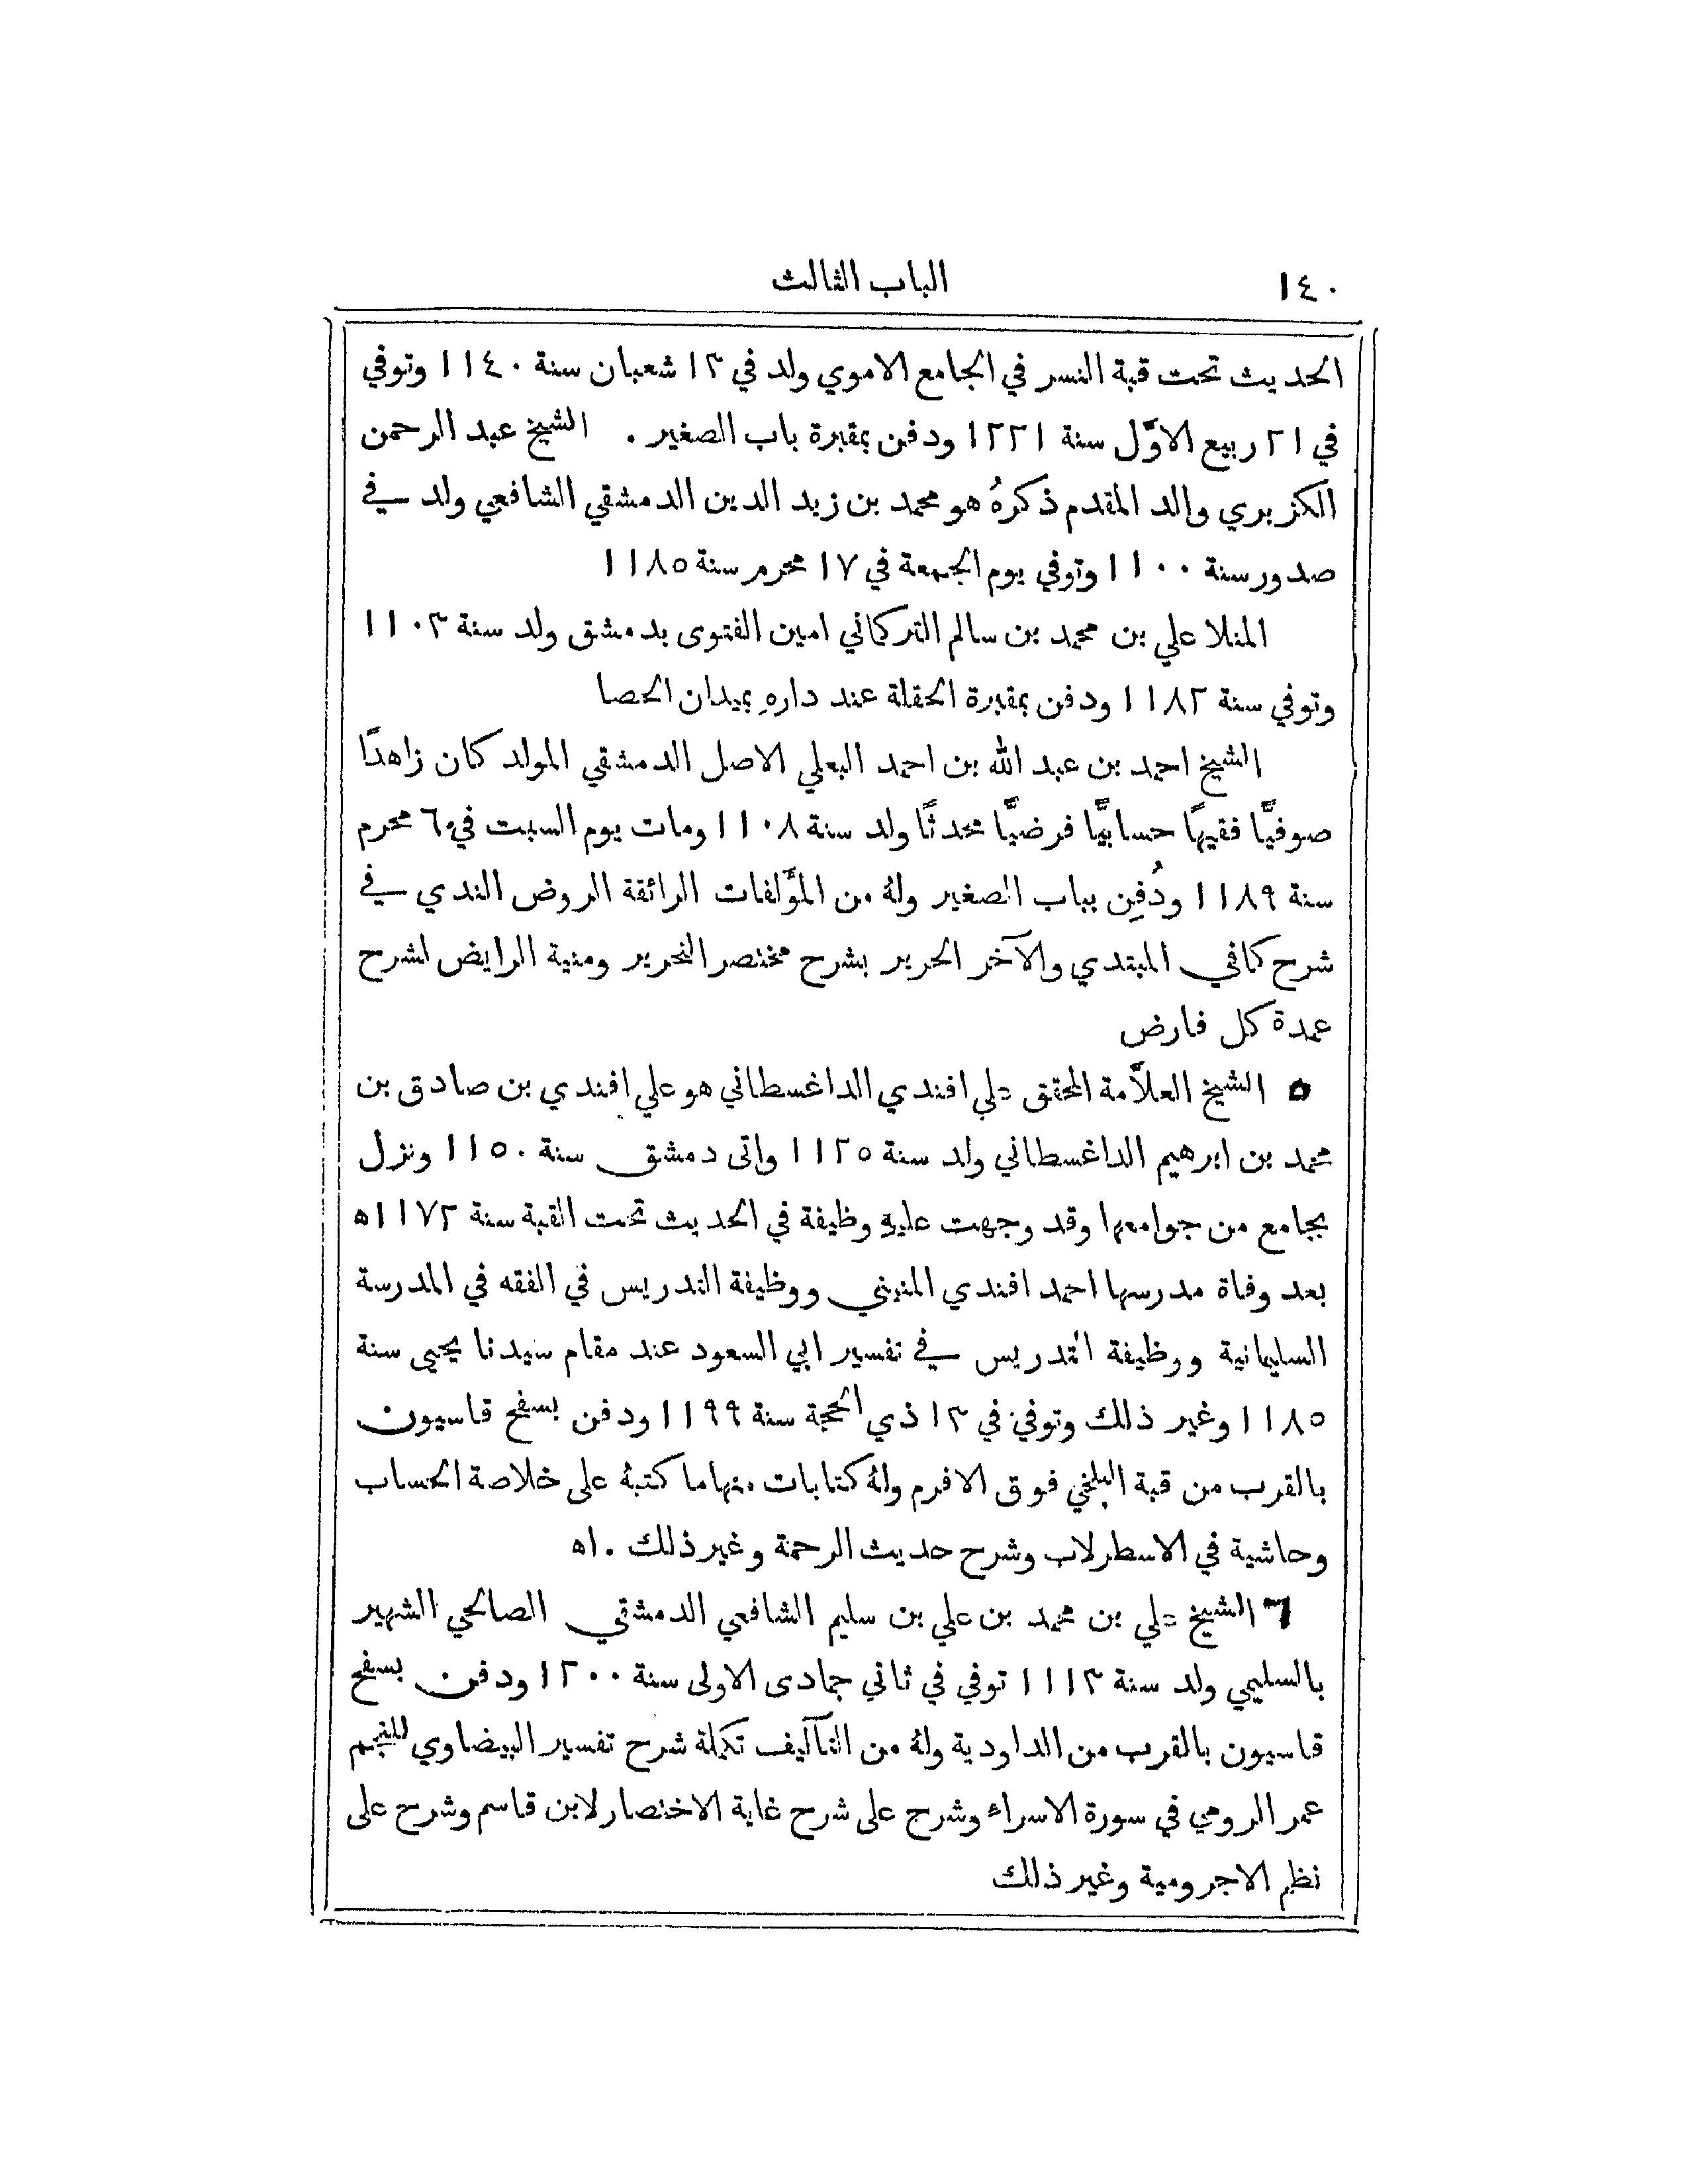 ١٤٠
الباب الثالث
الحديث تحت قبة النسر في الجامع الاموي ولد في ١٣ شعبان سنة ١١٤٠ وتوفي
في ٢١ ربيع الاوَّل سنة ١٢٢١ ودفن بمقبرة باب الصغير . الشيخ عبد الرحمن
الكزبري والد المقدم ذكرهُ هو محمد بن زيد الدين الدمشقي الشافعي ولد في
صدور سنة ١١٠٠ وتوفي يوم الجمعة في ١٧ محرم سنة ١١٨٥
المنلا علي بن محمد بن سالم التركماني امين الفتوى بدمشق ولد سنة ١١٠٣
وتوفي سنة ١١٨٣ ودفن بمقبرة الحقلة عند دارهِ بميدان الحصا
الشيخ احمد بن عبد الله بن احمد البعلي الاصل الدمشقي المولد كان زاهدًا
صوفيًّا فقيهًا حسابيًّا فرضيًّا محدثًا ولد سنة ١١٠٨ ومات يوم السبت في ٦ محرم
سنة ١١٨٩ ودُفِن بباب الصغير ولهُ من المؤَلفات الرائقة الروض الندي في
شرح كافي المبتدي والآخر الحرير بشرح مختصر التحرير ومنية الرايض لشرح
عمدة كل فارض
٥ الشيخ العلاَّمة المحقق علي افندي الداغسطاني هو علي افندي بن صادق بن
محمد بن ابرهيم الداغسطاني ولد سنة ١١٢٥ واتى دمشق سنة ١١٥٠ ونزل
بجامع من جوامعها وقد وجهت عليهِ وظيفة في الحديث تحت القبة سنة ١١٧٢ه
بعد وفاة مدرسها احمد افندي المنيني ووظيفة التدريس في الفقه في المدرسة
السليمانية ووظيفة التدريس في تفسير ابي السعود عند مقام سيدنا يحيى سنة
١١٨٥ وغير ذلك وتوفي في ١٣ ذي الحجة سنة ١١٩٩ ودفن بسفح قاسيون
بالقرب من قبة البلخي فوق الافرم ولهُ كتابات منها ما كتبهُ على خلاصة الحساب
وحاشية في الاسطرلاب وشرح حديث الرحمة وغير ذلك . اه
٦ الشيخ علي بن محمد بن علي بن سليم الشافعي الدمشقي الصالحي الشهير
بالسليمي ولد سنة ١١١٣ توفي في ثاني جمادى الاولى سنة ١٢٠٠ ودفن بسفح
قاسيون بالقرب من الداودية ولهُ من التآليف تكملة شرح تفسير البيضاوي للنجم
عمر الرومي في سورة الاسراء وشرح على شرح غاية الاختصار لابن قاسم وشرح على
نظم الاجرومية وغير ذلك